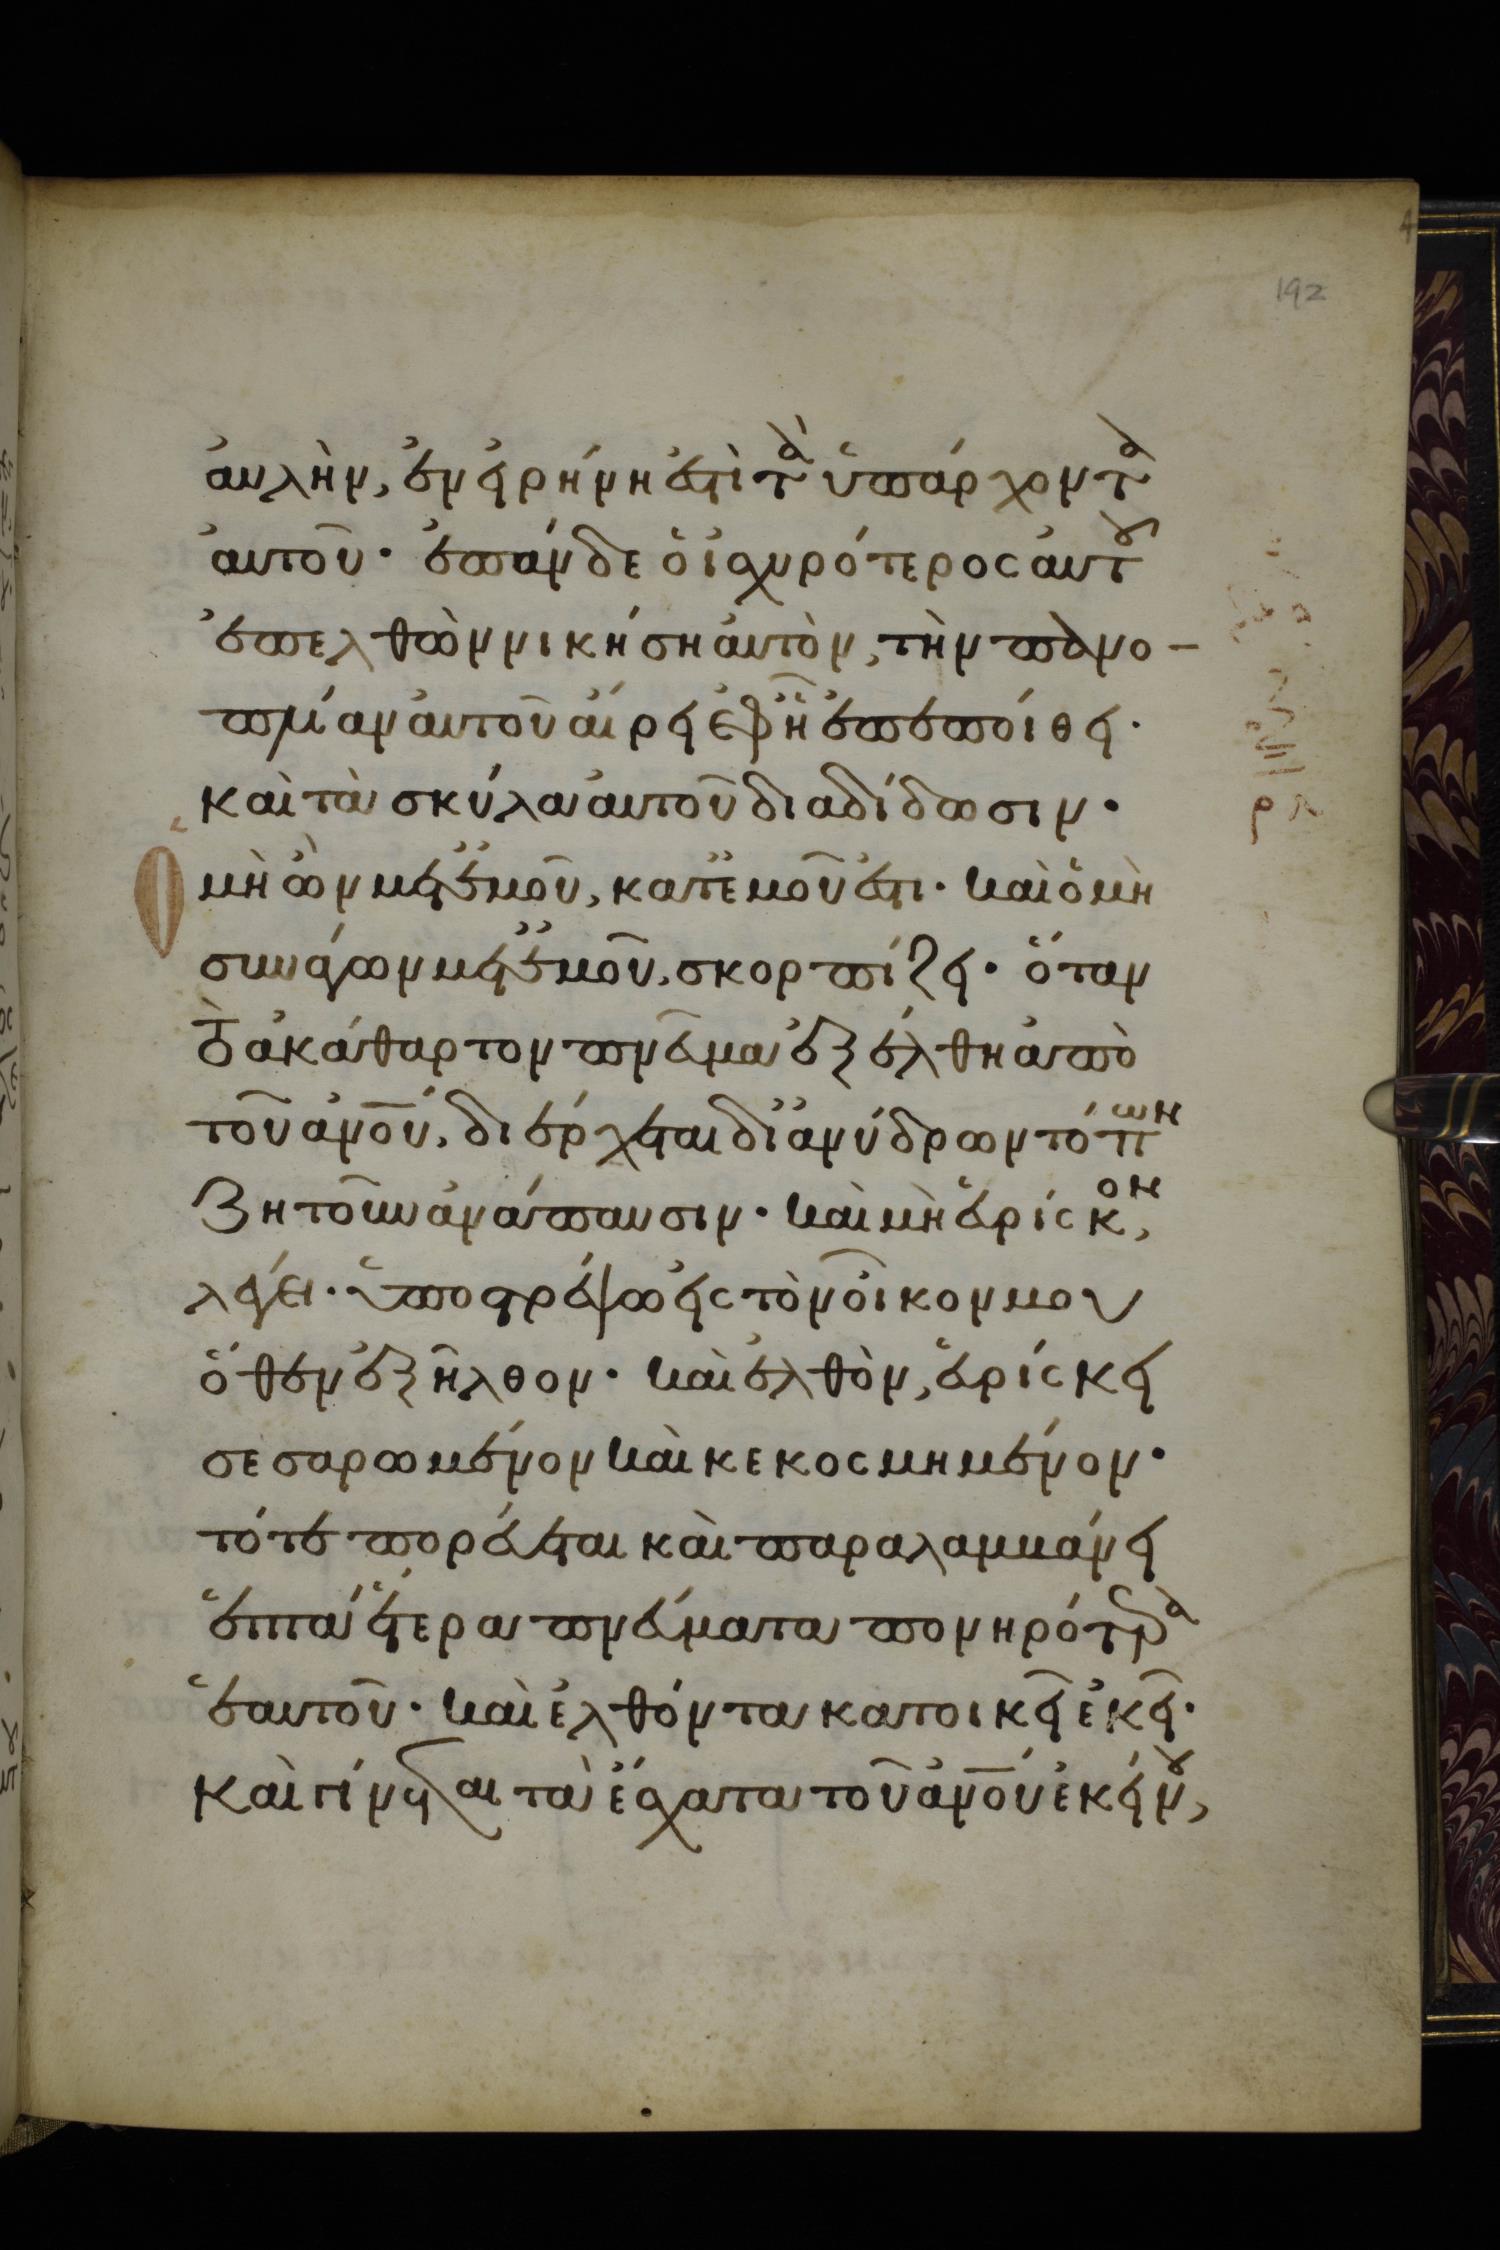 192
αὐλὴν, ἐν εἰρήνη ἐστὶ τὰ ὑπάρχοντα
αὐτοῦ· ἐπὰν δε ὁ ἰσχυρότερος αὐτοῦ
ἐπελθὼν νικήση αὐτὸν, τὴν πανο-
πλίαν αὐτοῦ αἴρει ἐφ ἧ ἐπεποίθει·
καὶ τὰ σκύλα αὐτοῦ διαδίδωσιν·
Ὁ μὴ ὢν μετ ἐμοῦ, κατ εμοῦ ἐστι· καὶ ὁ μὴ
συνάγων μετ ἐμοῦ, σκορπίζει· ὅταν
τὸ ἀκάθαρτον πνεῦμα ἐξέλθη ἀπὸ
τοῦ ανου, διέρχεται δι ἀνύδρων τόπων
ζητοῦν ἀνάπαυσιν· καὶ μὴ εὑρίσκον,
λέγει· ὑποστρέψω εἰς τὸν οἶκον μου
ὅθεν ἐξῆλθον· καὶ ἐλθὸν, εὑρίσκει
σεσαρωμένον καὶ κεκοσμημένον·
τότε πορεύεται καὶ παραλαμβάνει
ἑπτὰ ἕτερα πνεύματα πονηρότερα
ἑαυτοῦ· καὶ ἐλθόντα κατοικεῖ ἐκεῖ·
καὶ γίνεται τὰ ἔσχατα τοῦ ανου ἐκείνου,